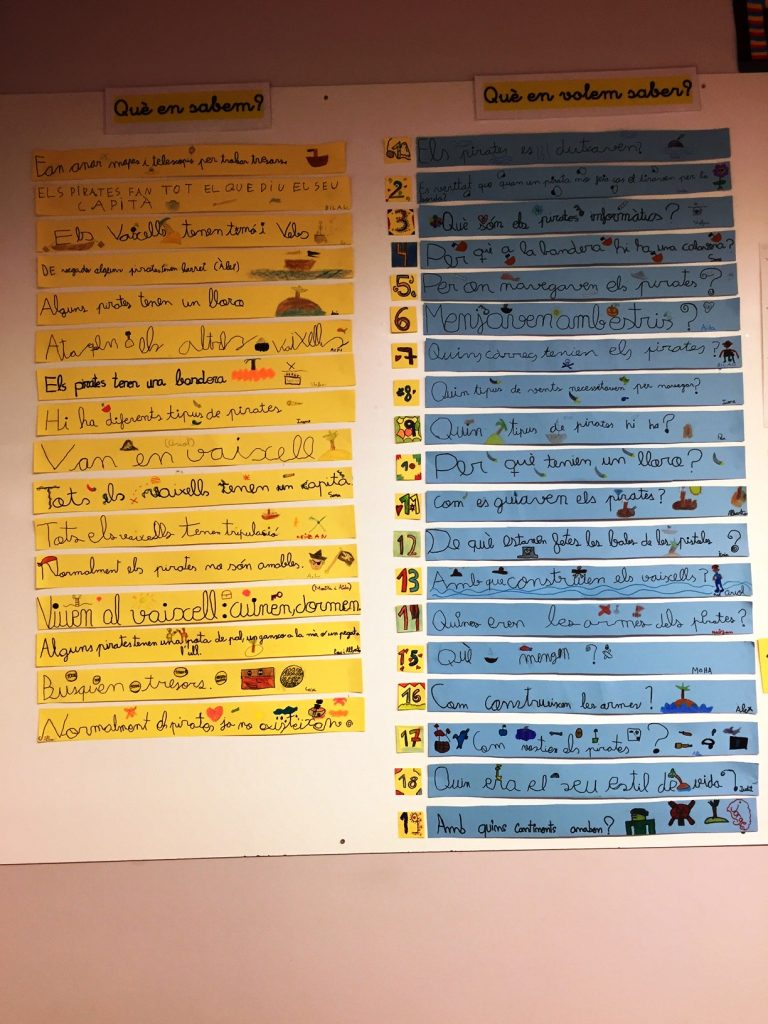 Què en sabem?
Fan anar mapes i telescopis per trobar tresors.
ELS PIRATES FAN TOT EL QUE DIU EL SEU
CAPITÀ
BILAL
Els Vaixells tenen timó i Veles
DE vegades alguns pirates tenen barret (Àlex)
Alguns pirates tenen un lloro
Ataquen els altres vaixells
Els pirates tenen una bandera
Hi ha diferents tipus de pirates
Van en vaixell
Tots els vaixells tenen un capità
Tots els vaixells tenen tripulació
Normalment els pirates no són amables.
Viuen al vaixell: cuinen, dormen
Alguns pirates tenen una pota de pal, un ganxo a la mà o un pegat a
l'ull.
Busquen tresors.
Normalment els pirates ja no existeixen
Què en volem saber?
1 Els pirates es dutxaven?
2 Es veritat que quan un pirata no feia cas el tiraven per la
borda?
3 Què són els pirates informàtics?
4 Per què a la bandera hi ha una calavera?
5 Per on navegaven els pirates?
6 Menjaven amb estris?
7 Quins càrrecs tenien els pirates?
8 Quin tipus de vents necessitaven per navegar?
9 Quin tipus de pirates hi ha?
10 Per què tenien un lloro?
11 Com es guiaven els pirates?
12 De què estaven fetes les bales de les pistoles?
13 Amb que construïen els vaixells?
14 Quines eren les armes dels pirates?
15 Què mengen?
MOHA
16 Com construeixen les armes?
Àlex
17 Com vestien els pirates?
18 Quin era el seu estil de vida?
Judit
19 Amb quins continents anaben?
Jorge